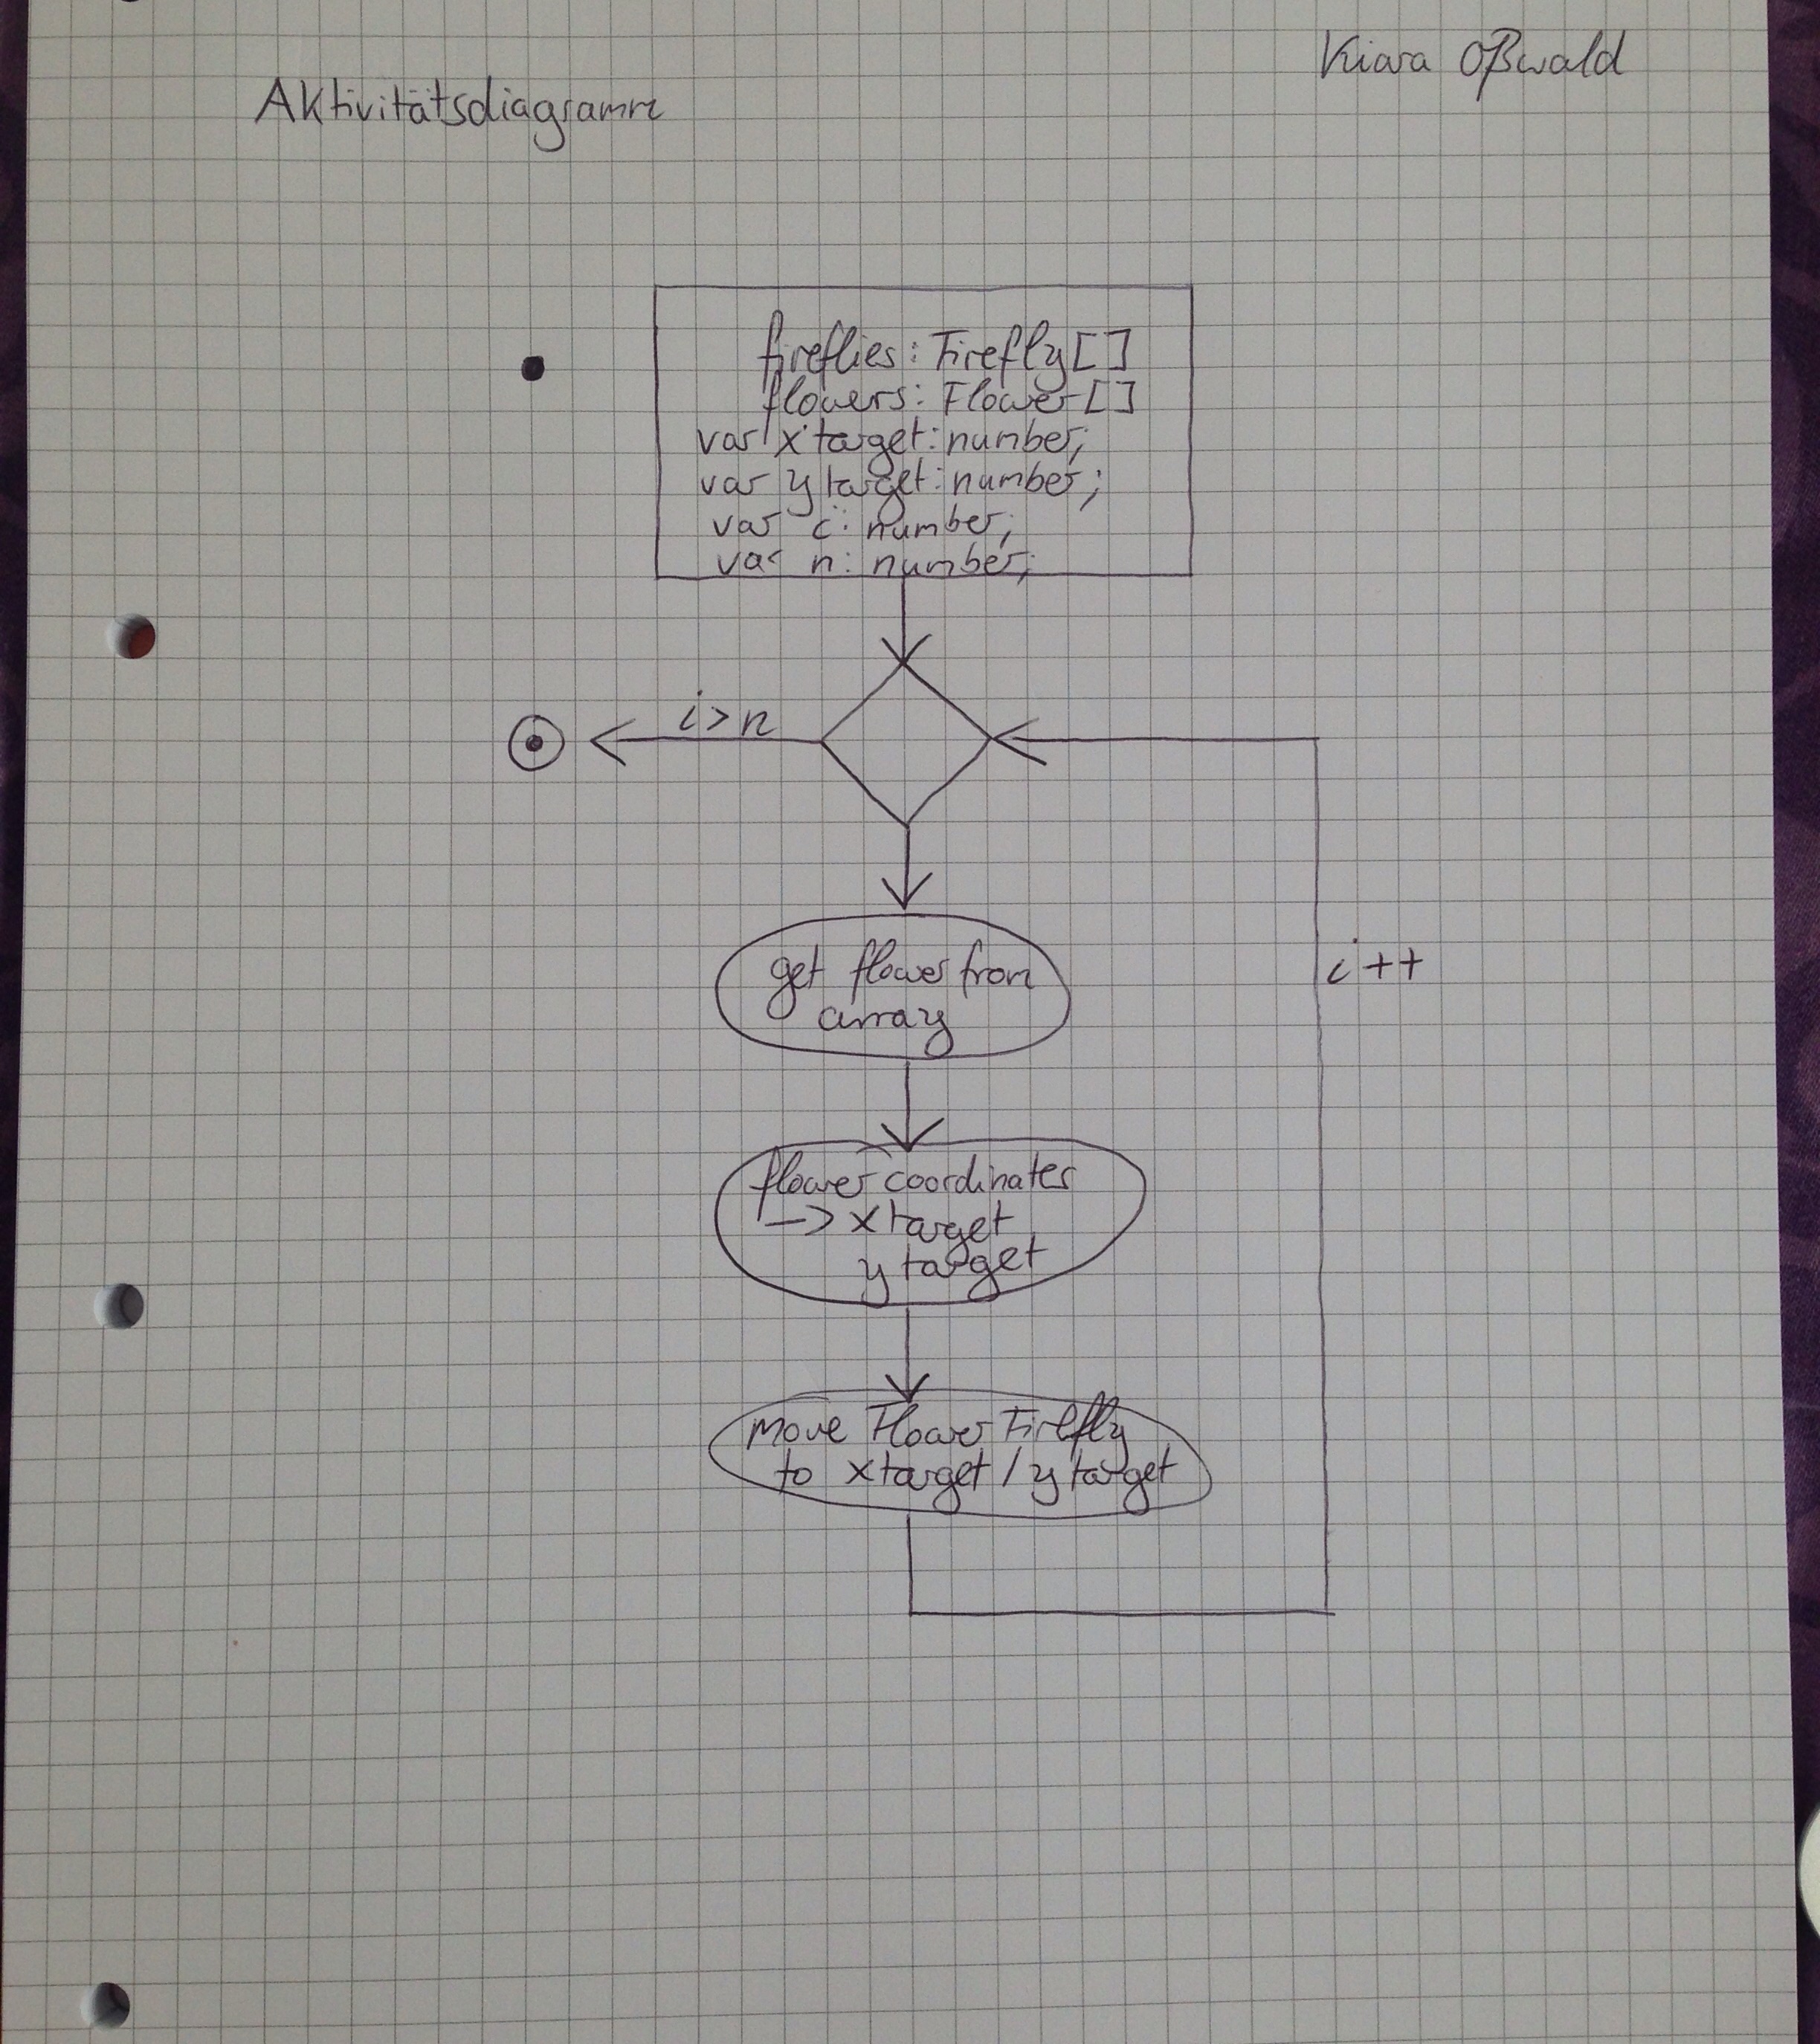 Kiara Oßwald
Aktivitätsdiagramm
fireflies: Firefly[]
flowers: Flower[]
var xtarget: number;
var ytarget: number;
var i: number;
var n: number;
i>n
get flower from
array
i++
flower coordinates
-> xtarget
ytarget
move Flower Firefly
to xtarget / ytarget